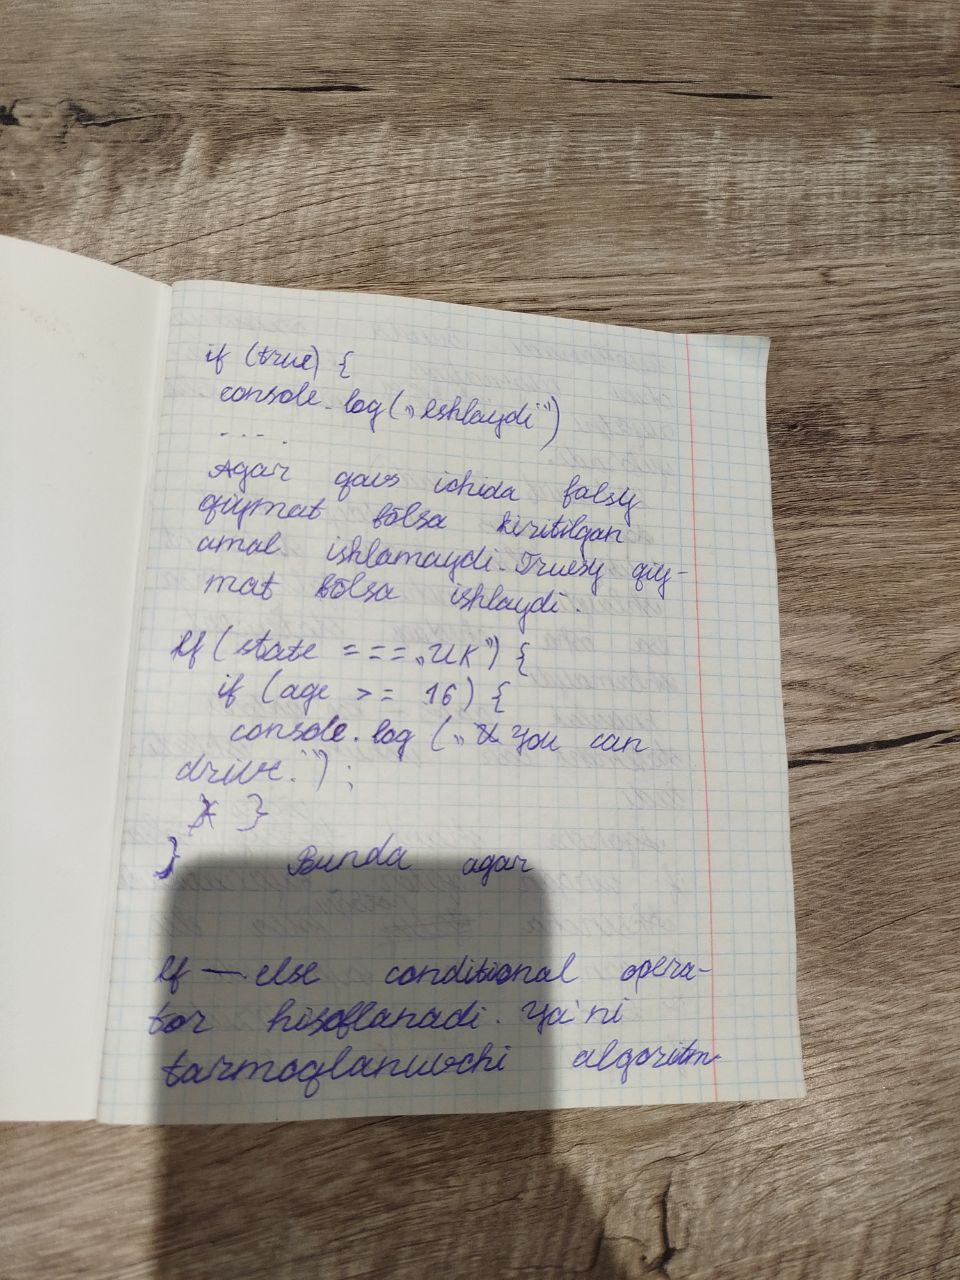 if (true) {
console.log („Ishlaydi”)
....
Agar qavs ichida falsy
qiymat bo'lsa kiritilgan
amal ishlamaydi. Truesy qiy-
mat bo'lsa ishlaydi.
If (state === „UK”) {
if (age >= 16) {
console.log („You can
drive.”) ;
}
} Bunda agar
If — else conditional opera-
tor hisoblanadi. Ya'ni
tarmoqlanuvchi algoritm